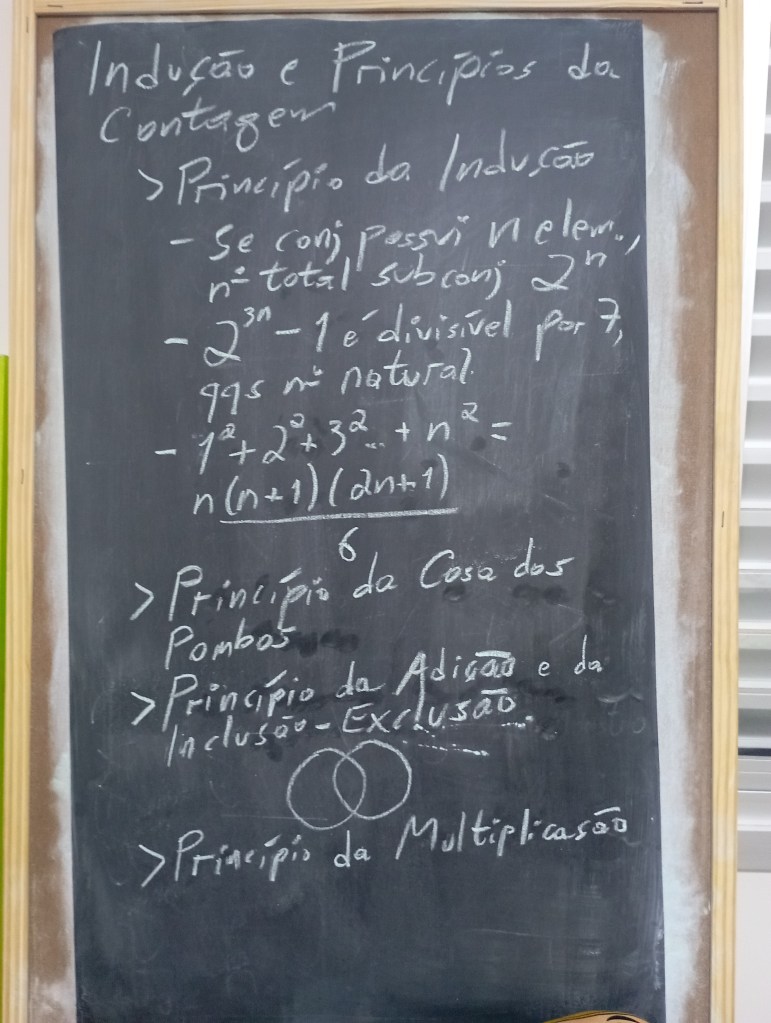 Indução e Princípios da
Contagem
> Princípio da Indução
- Se conj possui n elem.,
nº total subconj 2ⁿ
- 2³ⁿ - 1 é divisível por 7,
qqs nº natural.
- 1² + 2² + 3² ... + n² =
n(n+1)(2n+1)
6
> Princípio da Casa dos
Pombos
> Princípio da Adição e da
Inclusão - Exclusão.
> Princípio da Multiplicasão